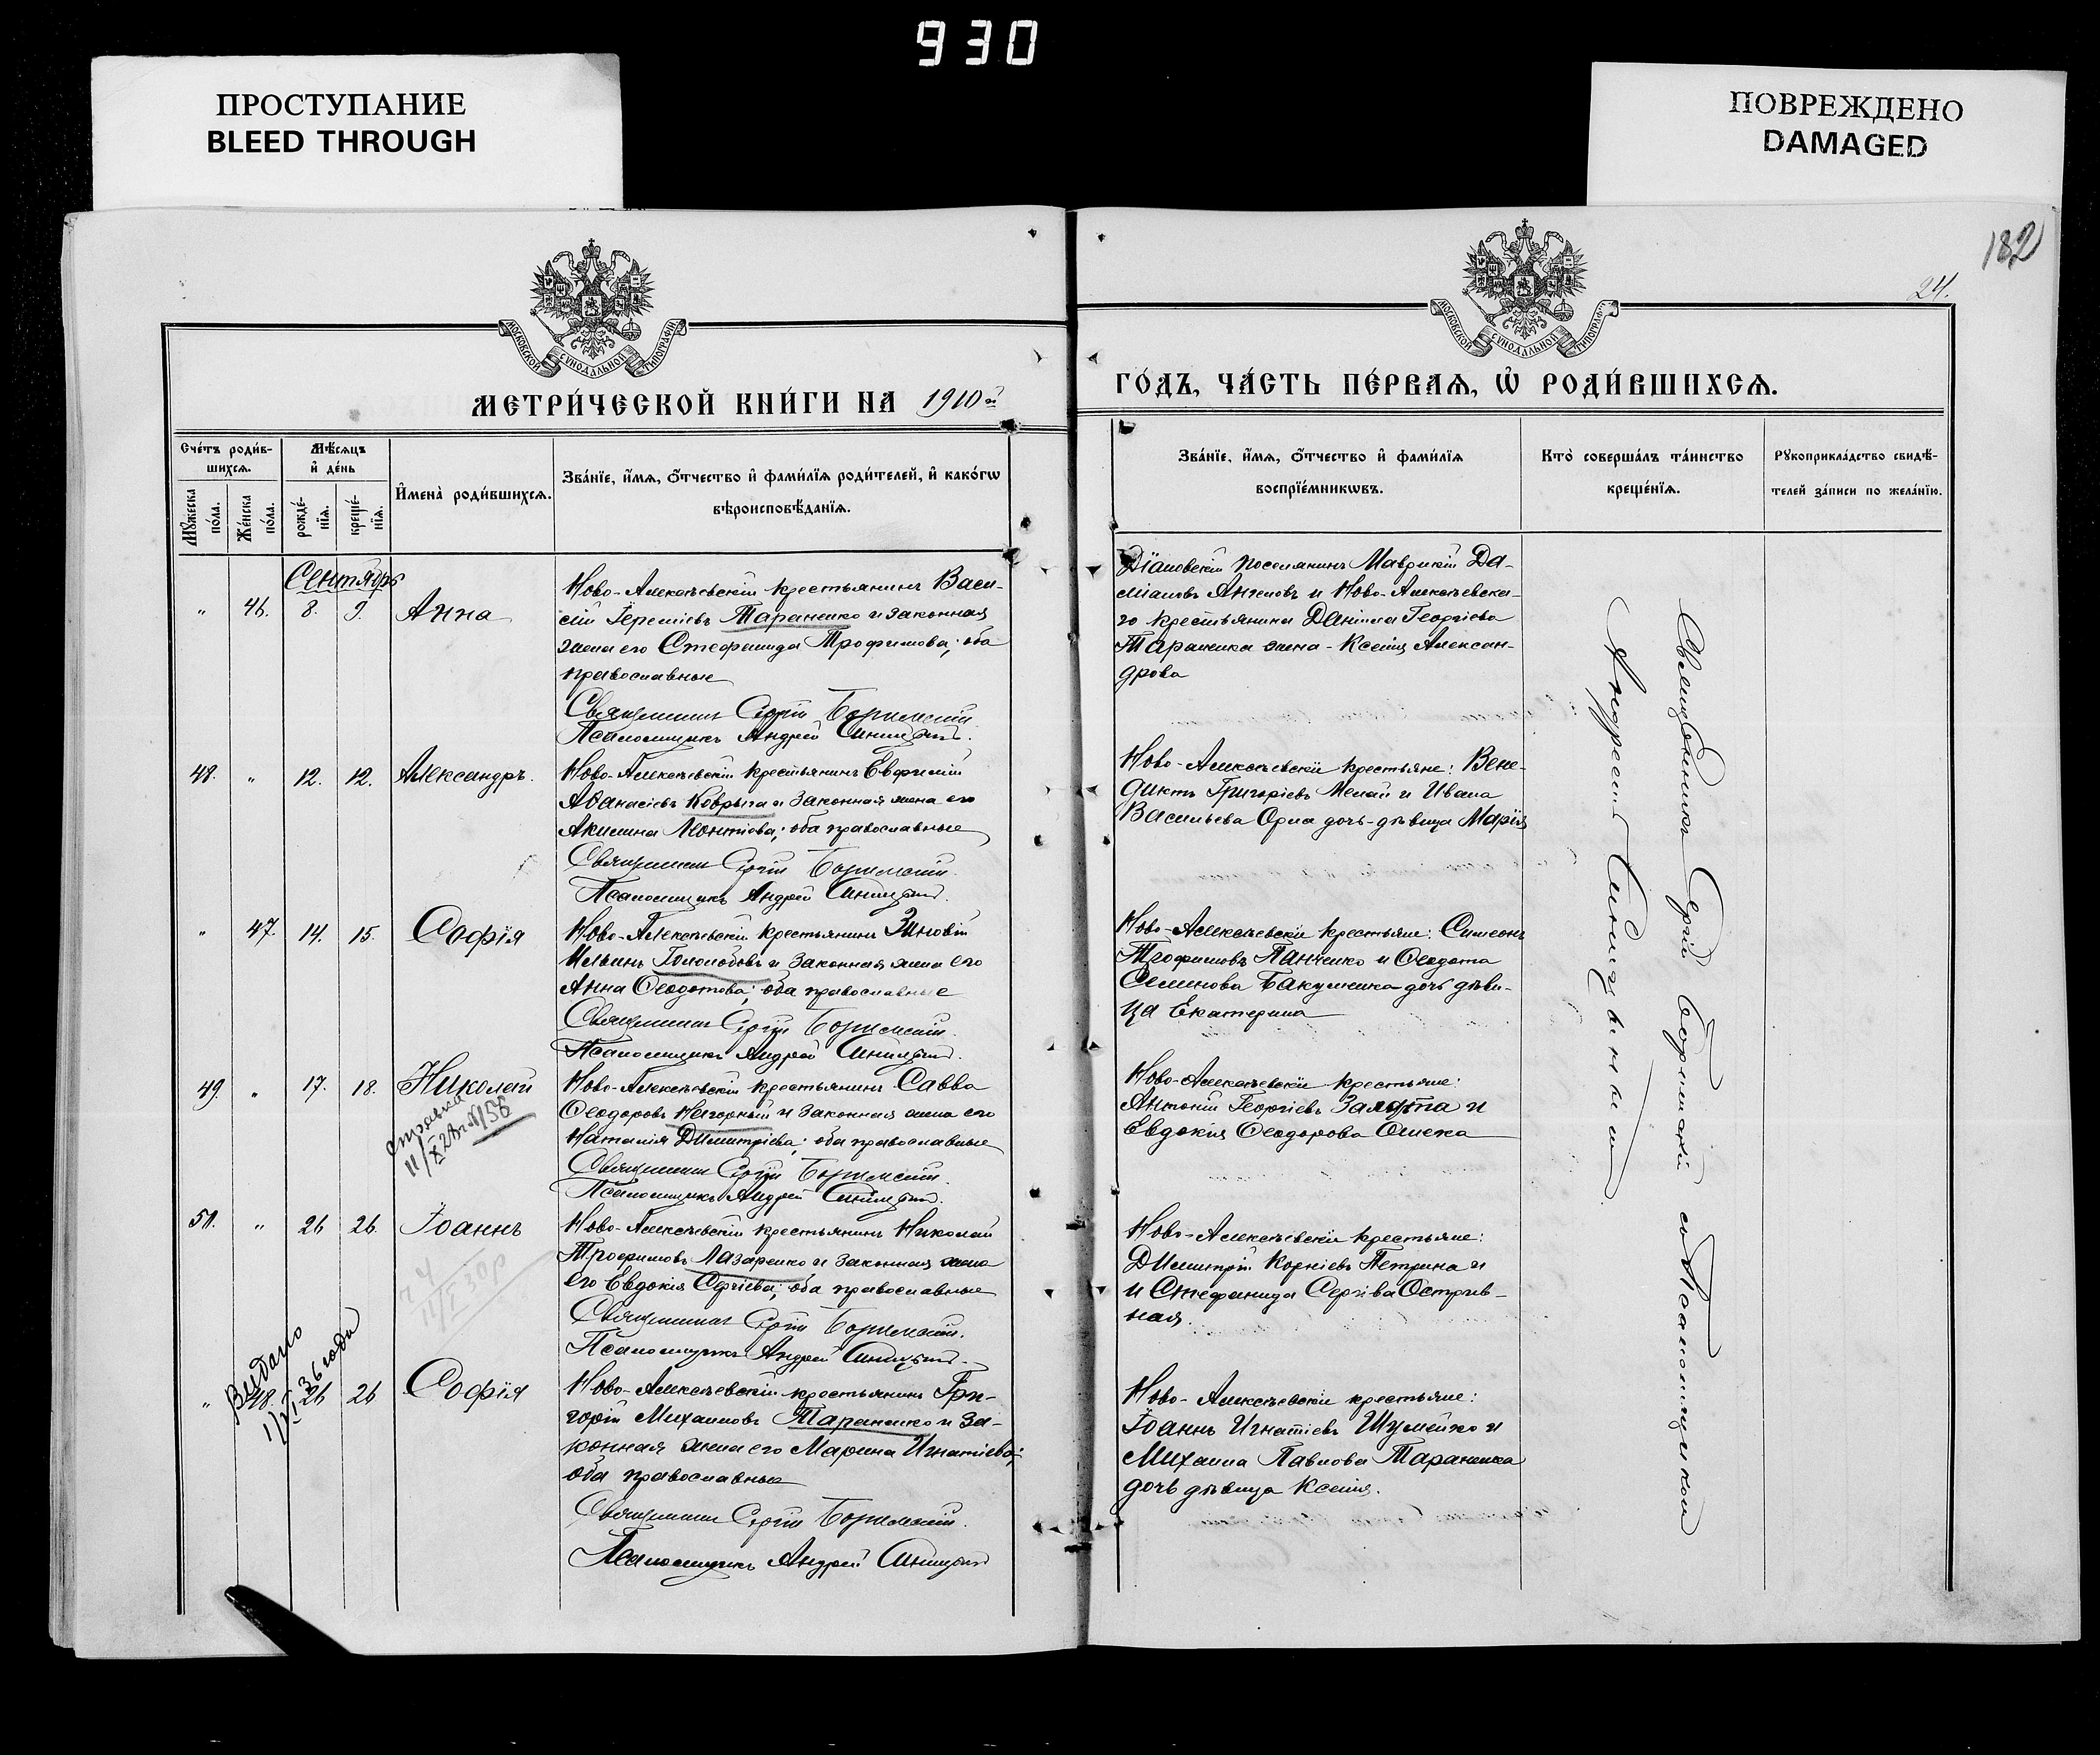 930
ПРОСТУПАНИЕ
BLEED THROUGH
ПОВРЕЖДЕНО
DAMAGED
182
24.
МОСКОВСКОЙ СѴНОДАЛЬНОЙ ТИПОГРАФІИ
МОСКОВСКОЙ СѴНОДАЛЬНОЙ ТИПОГРАФІИ
МЕТРИ́ЧЕСКОЙ КНИ́ГИ НА 1910й
ГО́ДЪ, ЧА́СТЬ ПЕ́РВАѦ, Ѡ҆ РОДИ́ВШИХСѦ.
Сче́тъ роди́в-
шихсѧ.
Мѣ́сѧцъ
и҆ де́нь
Мꙋ́жеска по́ла.
Же́нска по́ла.
рожде́-
нїѧ.
креще́-
нїѧ.
И҆мена̀ роди́вшихсѧ.
Зва́нїе, и҆́мѧ, ѻ҆́тчество и҆ фами́лїѧ роди́телей, и҆ како́гѡ
вѣроисповѣ́данїѧ.
Зва́нїе, и҆́мѧ, ѻ҆́тчество и҆ фами́лїѧ
воспрїе́мникѡвъ.
Кто̀ соверша́лъ та́инство
креще́нїѧ.
Рꙋкоприкла́дство свидѣ́-
телей за́писи по жела́нїю.
Сентябрь
" 46. 8. 9. Анна
Ново-Алексѣевскій крестьянинъ Васи-
лій Іереміевъ Тараненко и законная
жена его Стефанида Трофимова; оба
православные
Священникъ Сергій
Псаломщикъ Андрей Синицкій.
Діановскій поселянинъ Маврикій Да-
міановъ Ангеловъ и Ново-Алексѣевска-
го крестьянина Даніила Георгіева
Тараненка жена - Ксенія Алексан-
дрова
48. " 12. 12. Александръ.
Ново-Алексѣевскій крестьянинъ Евфимій
Аѳанасіевъ Коврыга и законная жена его
Акилина Леонтіева; оба православные
Священникъ Сергій
Псаломщикъ Андрей Синицкій.
Ново-Алексѣевскіе крестьяне: Вене-
диктъ Григоріевъ Мелай и Ивана
Васильева Орла дочь-дѣвица Марія
" 47. 14. 15. Софія
Ново-Алексѣевскій крестьянинъ Зиновій
Ильинъ Гололобовъ и законная жена его
Анна Ѳеодотова; оба православные
Священникъ Сергій
Псаломщикъ Андрей Синицкій.
Ново-Алексѣевскіе крестьяне: Симеонъ
Трофимовъ Панченко и Ѳеодота
Семенова Бакуменка дочь дѣви-
ца Екатерина
49. " 17. 18. Николай
справка
Ново-Алексѣевскій крестьянинъ Савва
Ѳеодоровъ Нагорный и законная жена его
Наталія Димитріева; оба православные
Священникъ Сергій
Псаломщикъ Андрей Синицкій.
Ново-Алексѣевскіе крестьяне:
Антоній Георгіевъ и
Евдокія Ѳеодорова
50. " 26 26. Іоаннъ
Ново-Алексѣевскій крестьянинъ Николай
Трофимовъ Лазаренко и законная жена
его Евдокія Сергіева; оба православные
Священникъ Сергій
Псаломщикъ Андрей Синицкій.
Ново-Алексѣевскіе крестьяне:
Димитрій Корніевъ Петрина и
и Стефанида Сергіева Острив-
ная.
Видано
1/VI 36 года
" 48. 26 26 Софія
Ново-Алексѣевскій крестьянинъ Гри-
горій Михаиловъ Тараненко и за-
конная жена его Марина Игнатіева;
оба православные
Священникъ Сергій
Псаломщикъ Андрей Синицкій
Ново-Алексѣевскіе крестьяне:
Іоаннъ Игнатіевъ Шумейко и
Михаила Павлова Тараненка
дочь дѣвица Ксенія.
Священникъ Сергій съ Псаломщикомъ
Андреемъ Синицкимъ